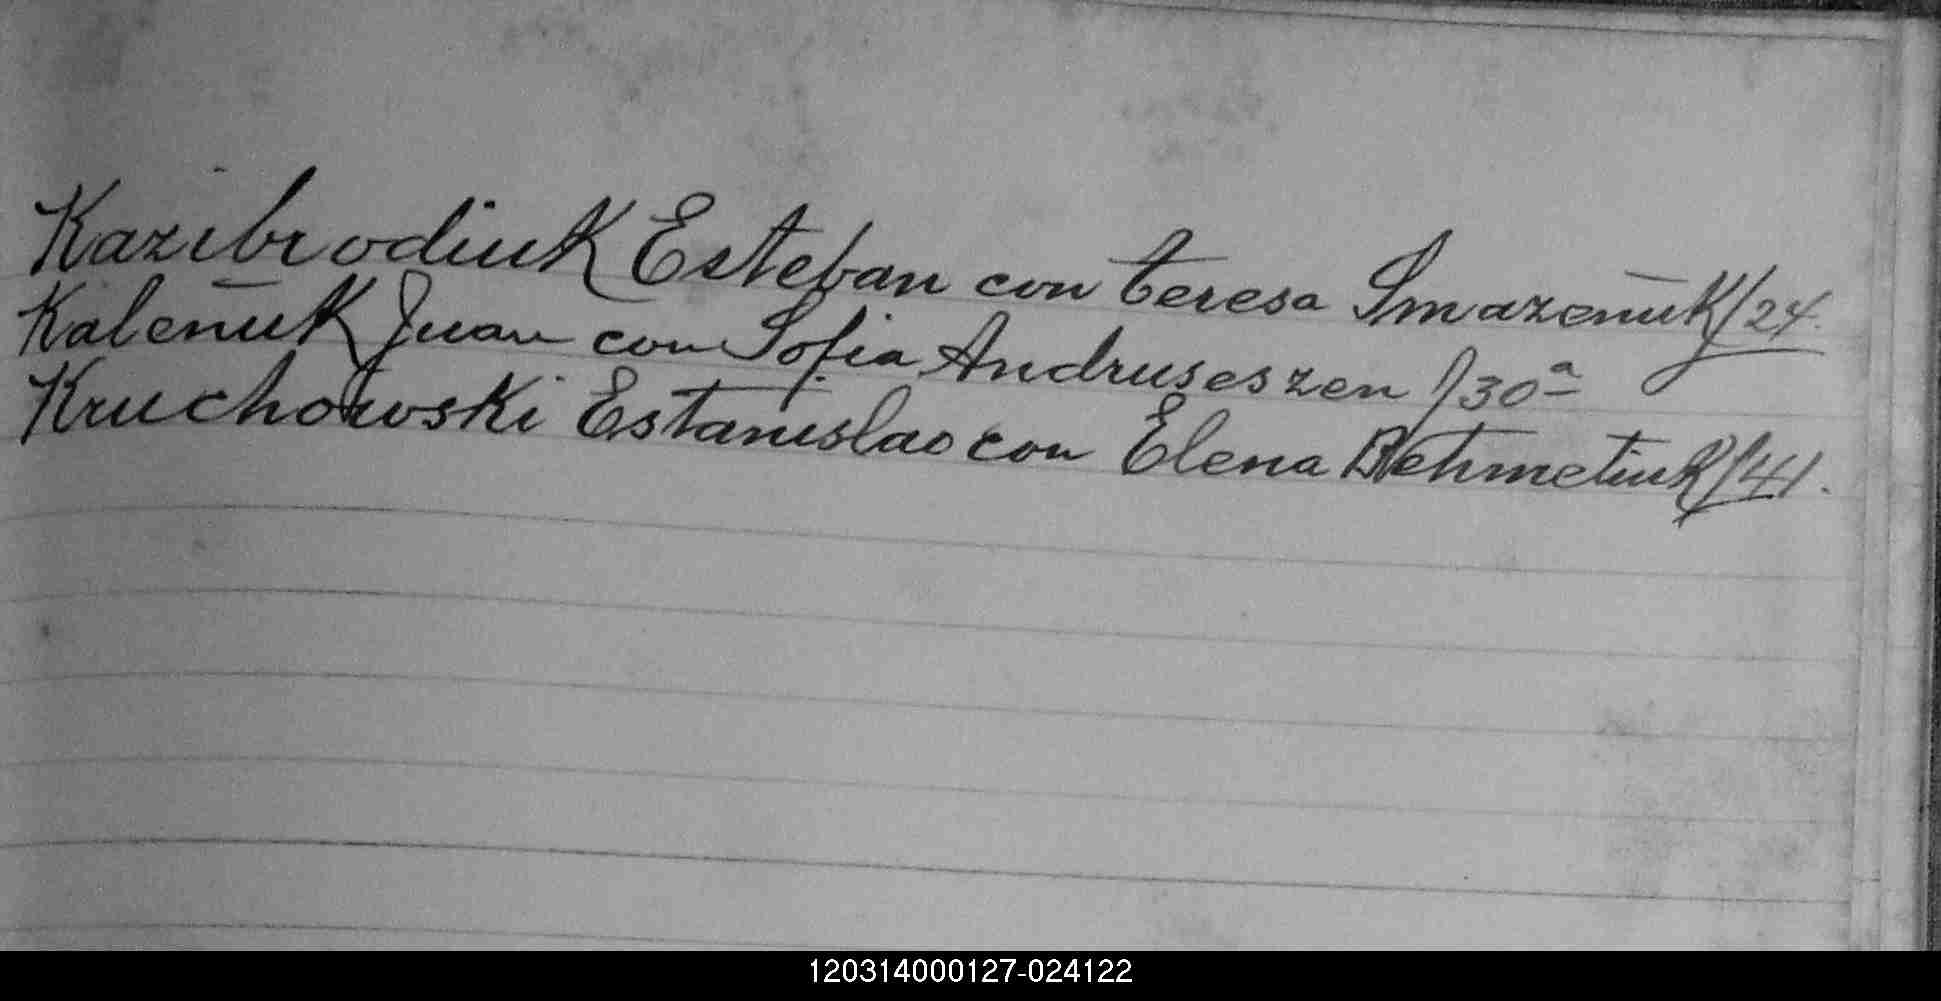 Kazibrodiuk Esteban con teresa Smazeñuk f/24.
Kaleñuk Juan con Sofia Andruseszen f/30ª
Kruchowski Estanislao con Elena Behmetiuk f/41.
120314000127-024122